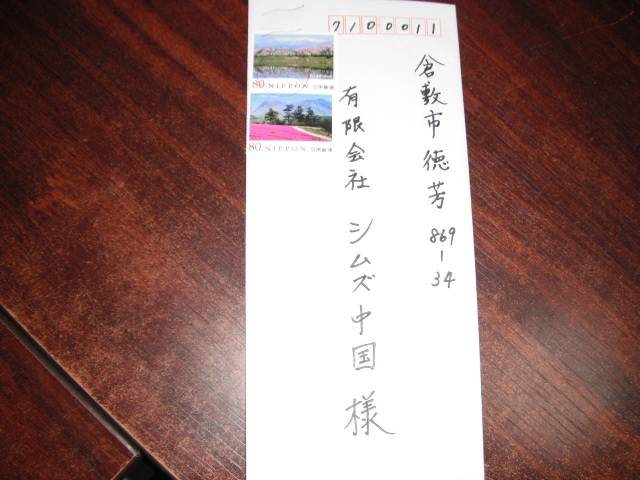 7100011
倉敷市徳芳
869-34
有限会社 シムズ中国 様
80 NIPPON 日本郵便
80 NIPPON 日本郵便